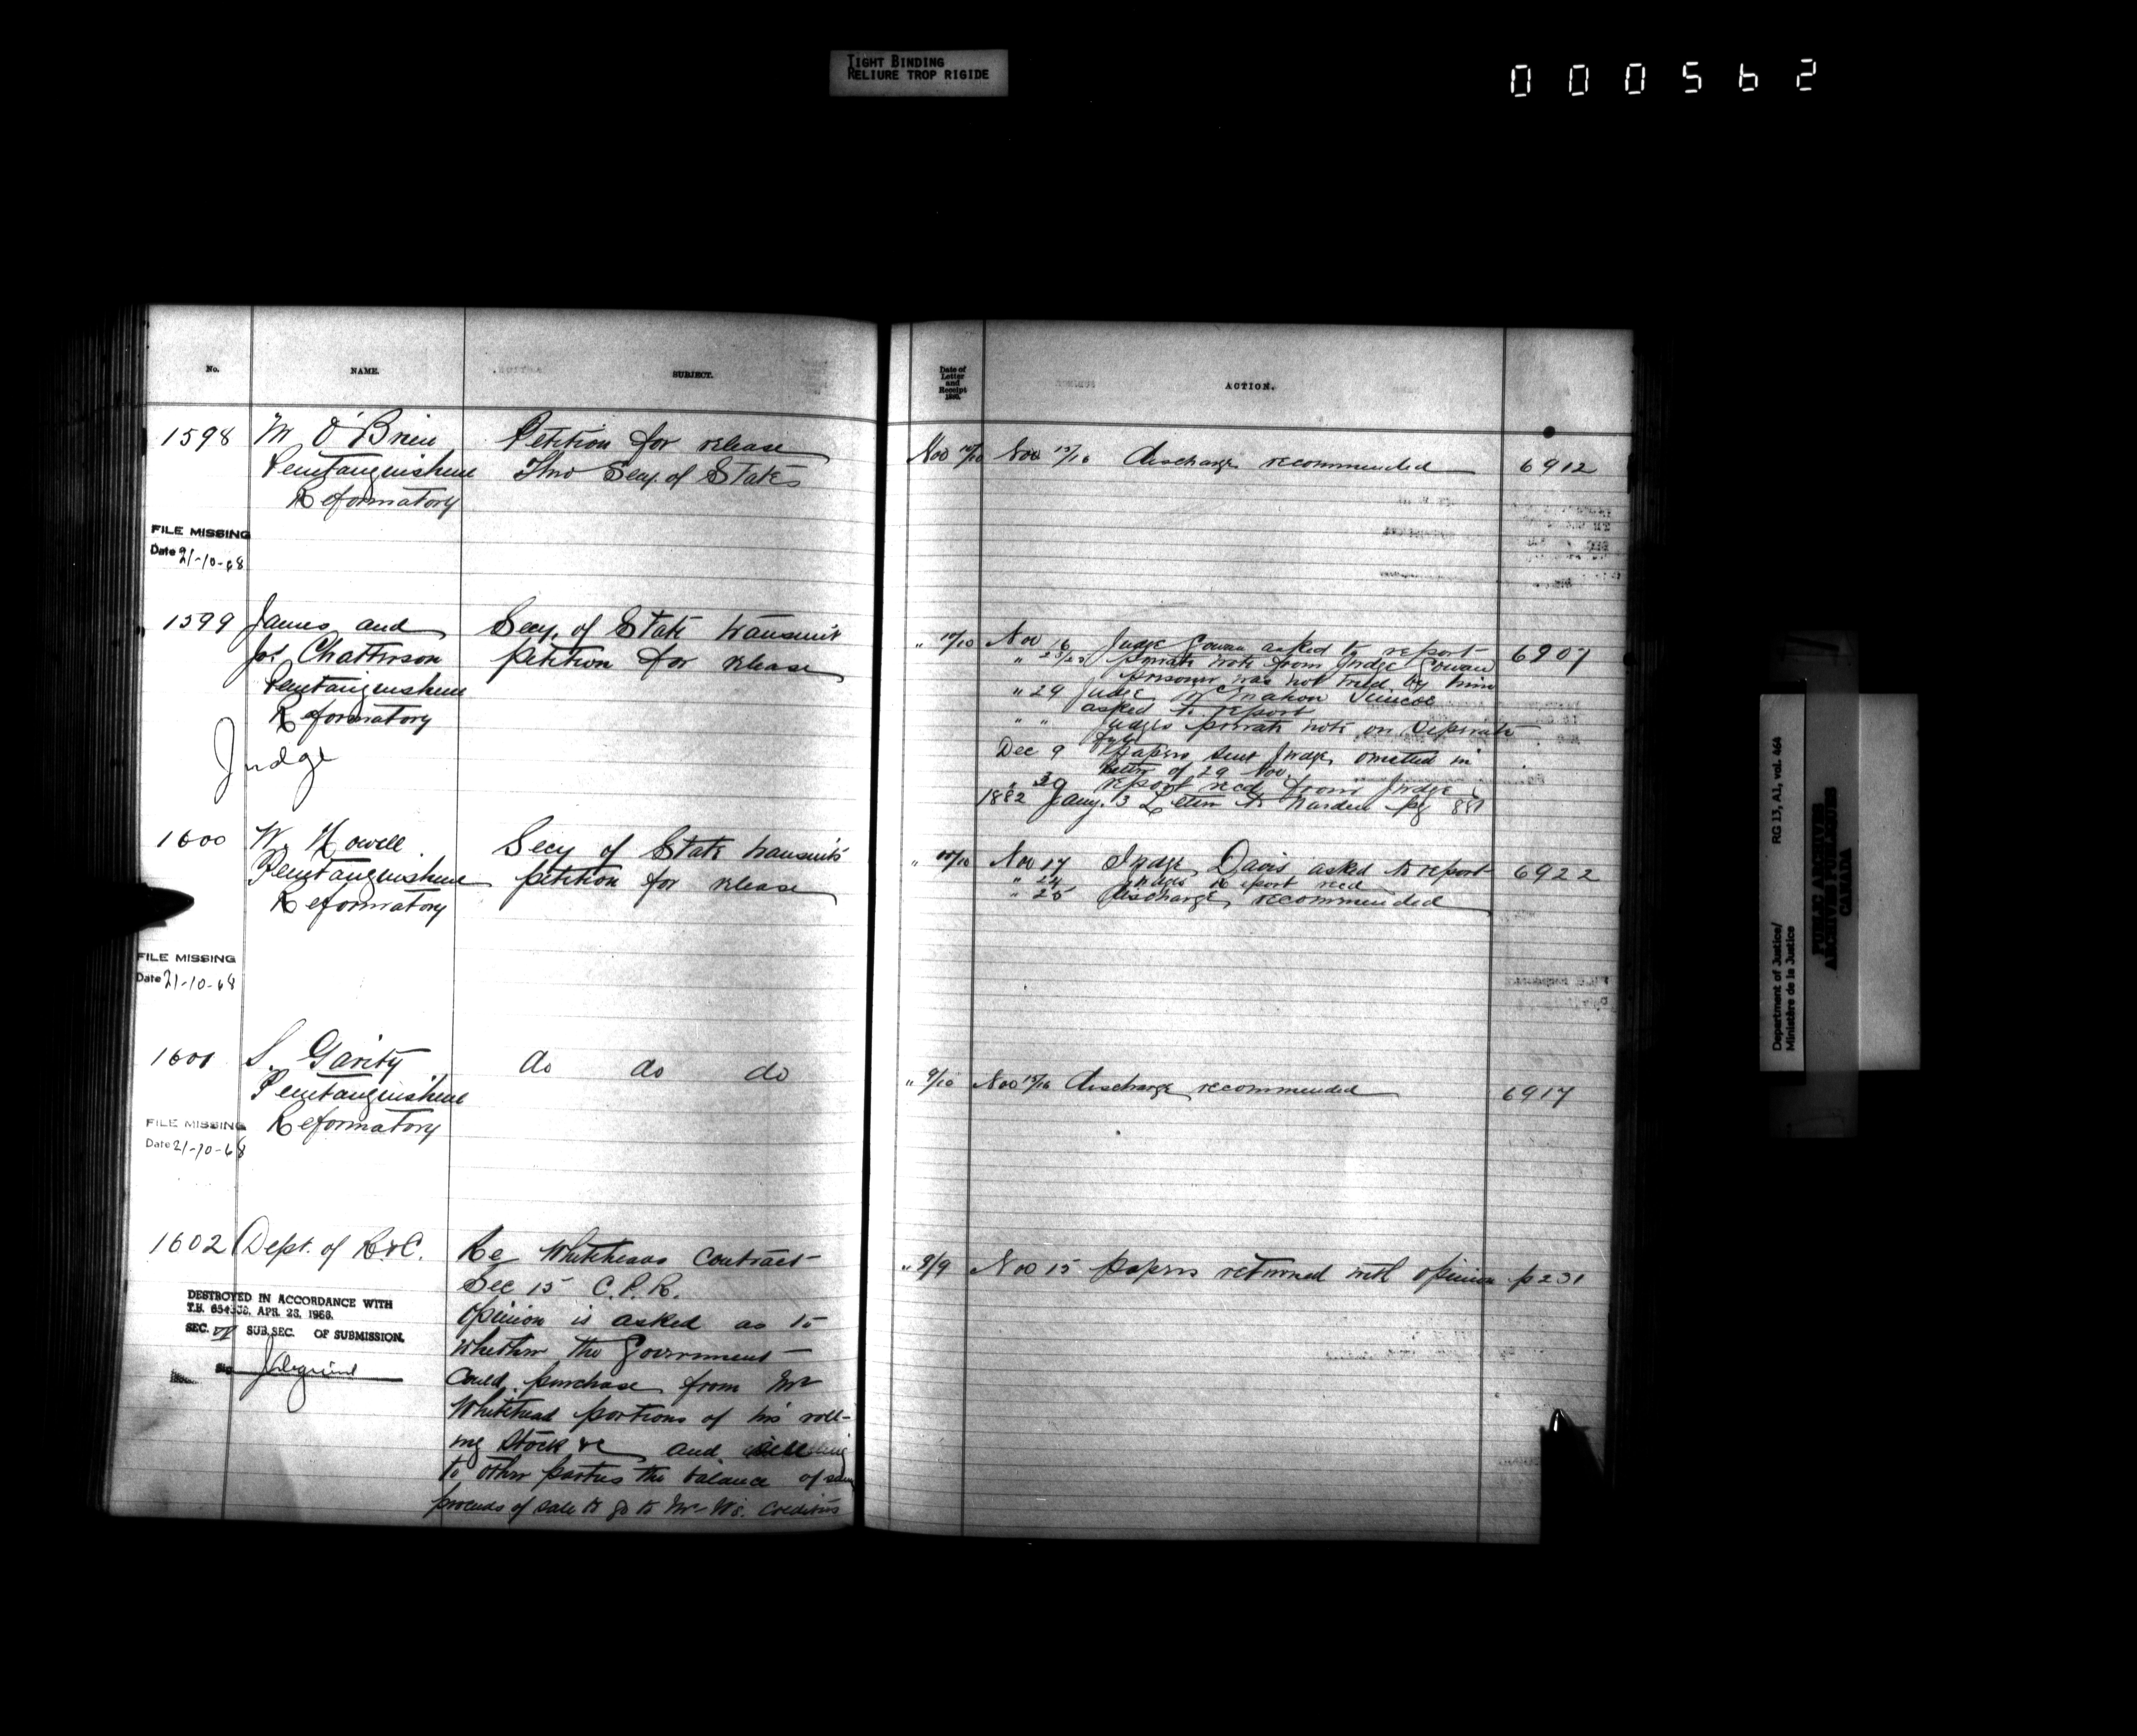 TIGHT BINDING
RELIURE TROP RIGIDE
000562
No.
NAME.
SUBJECT.
1598
M O'Brien
Petition for release
Penetanguishene
Thro Secy. of State
Reformatory
FILE MISSING
Date 21-10-68
1599
James and
Secy. of State transmit
Jos Chatterson
petition for release
Penetanguishene
Reformatory
Judge
1600
W. Howell
Secy of State transmits
Penetanguishene
petition for release
Reformatory
FILE MISSING
Date 21-10-68
1601
S. Garity
do do do
Penetanguishene
Reformatory
FILE MISSING
Date 21-10-68
1602
Dept. of R & C.
Re Whiteheads Contract
Sec 15 C.P.R.
opinion is asked as to
whether the Government
could purchase from Mr
Whitehead portions of his roll-
ing stock &c and
to other parties the balance of same
proceeds of sale to go to Mr W's. Creditors
DESTROYED IN ACCORDANCE WITH
T.B. APR. 28, 1966.
SEC. VI SUB.SEC. OF SUBMISSION.
Date of
Letter
and
Receipt
ACTION.
Nov Nov 15/16 discharge recommended 6912
" 10/10 Nov 16 Judge Gowan asked to report 6907
" 23/23 Private note from Judge Gowan
prisoner was not tried by him
" 29 Judge McMahon Simcoe
asked to report
" " Judges private note on Separate
file
Dec 9 Papers sent Judge, omitted in
letter of 29 Nov
report recd from Judge
1882 Jany. 3 Letter to Warden pg 881
" 10/10 Nov 17 Judge Davis asked to report 6922
" 24 Judges Report recd
" 25 discharge recommended
" 9/10 Nov 15/16 discharge recommended 6917
" 8/9 Nov 15 papers returned with opinion p 231
Department of Justice/
Ministère de la Justice
RG 13, A1, vol. 464
PUBLIC ARCHIVES
ARCHIVES PUBLIQUES
CANADA